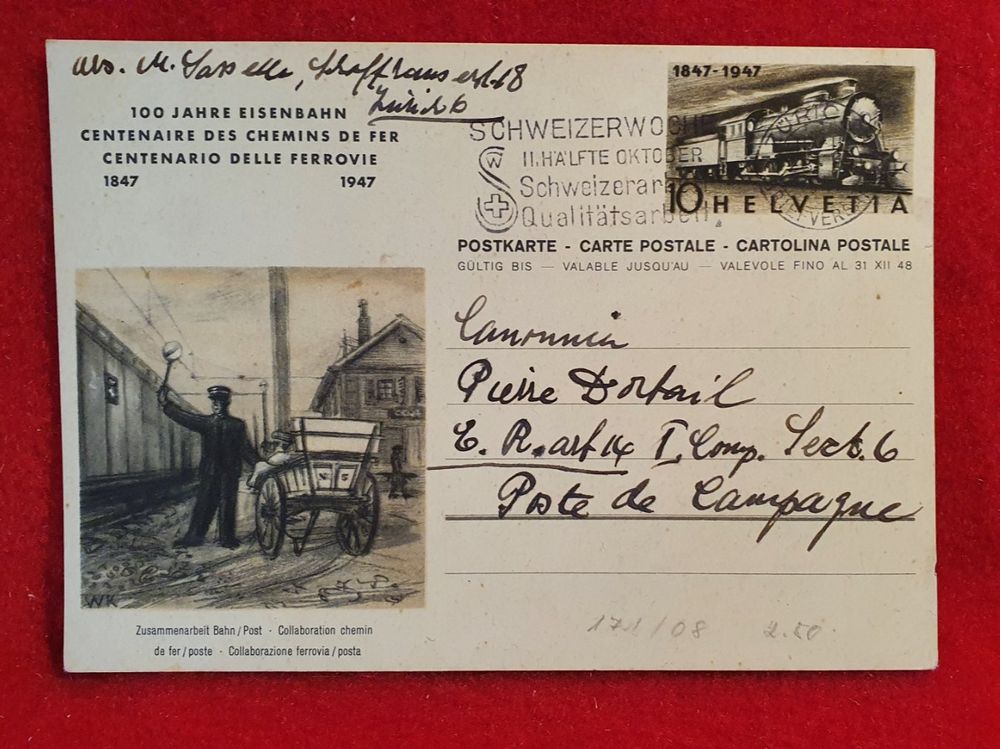 abs. M. Sassella, Schaffhauserstr. 18
Zürich 6
100 JAHRE EISENBAHN
CENTENAIRE DES CHEMINS DE FER
CENTENARIO DELLE FERROVIE
1847 1947
SCHWEIZERWOCHE
II. HÄLFTE OKTOBER
Schweizerar
Qualitätsarbeit
1847-1947
10 HELVETIA
POSTKARTE - CARTE POSTALE - CARTOLINA POSTALE
GÜLTIG BIS — VALABLE JUSQU'AU — VALEVOLE FINO AL 31 XII 48
Canonnier
Pierre Dortail
E. R. art 14 I. Comp. Sect. 6
Poste de Campagne
WK
Zusammenarbeit Bahn/Post · Collaboration chemin
de fer/poste · Collaborazione ferrovia/posta
171/08 2.50